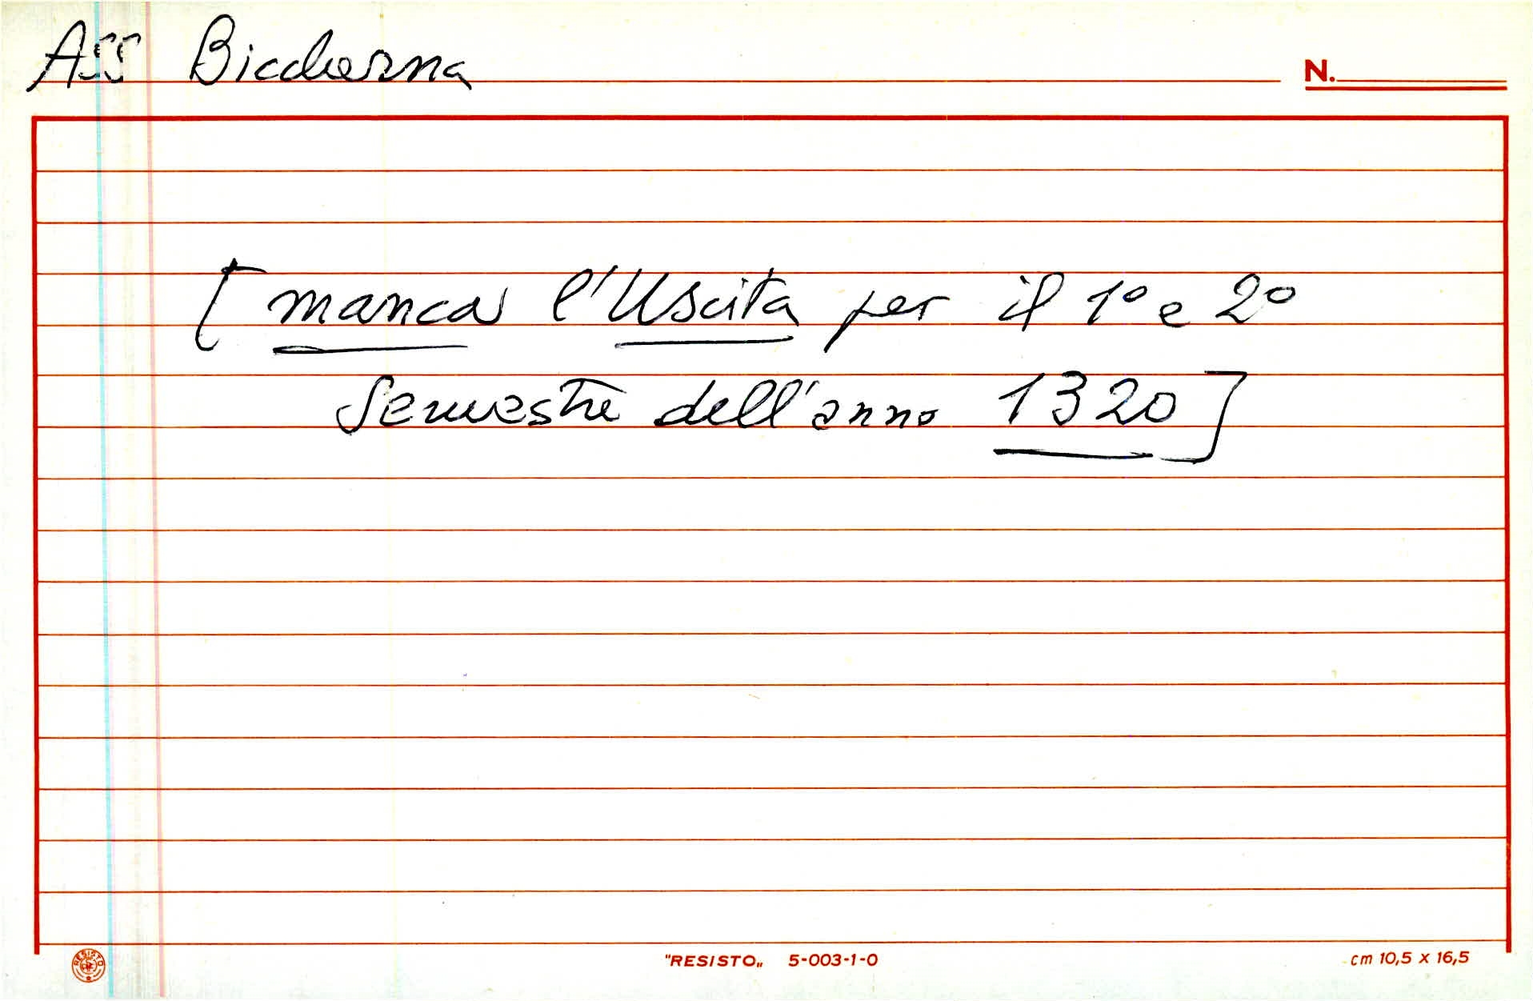 ASS Biccherna
N.
[manca l'Uscita per il 1° e 2°
Semestre dell'anno 1320]
RESISTO
"RESISTO„ 5-003-1-0
cm 10,5 x 16,5